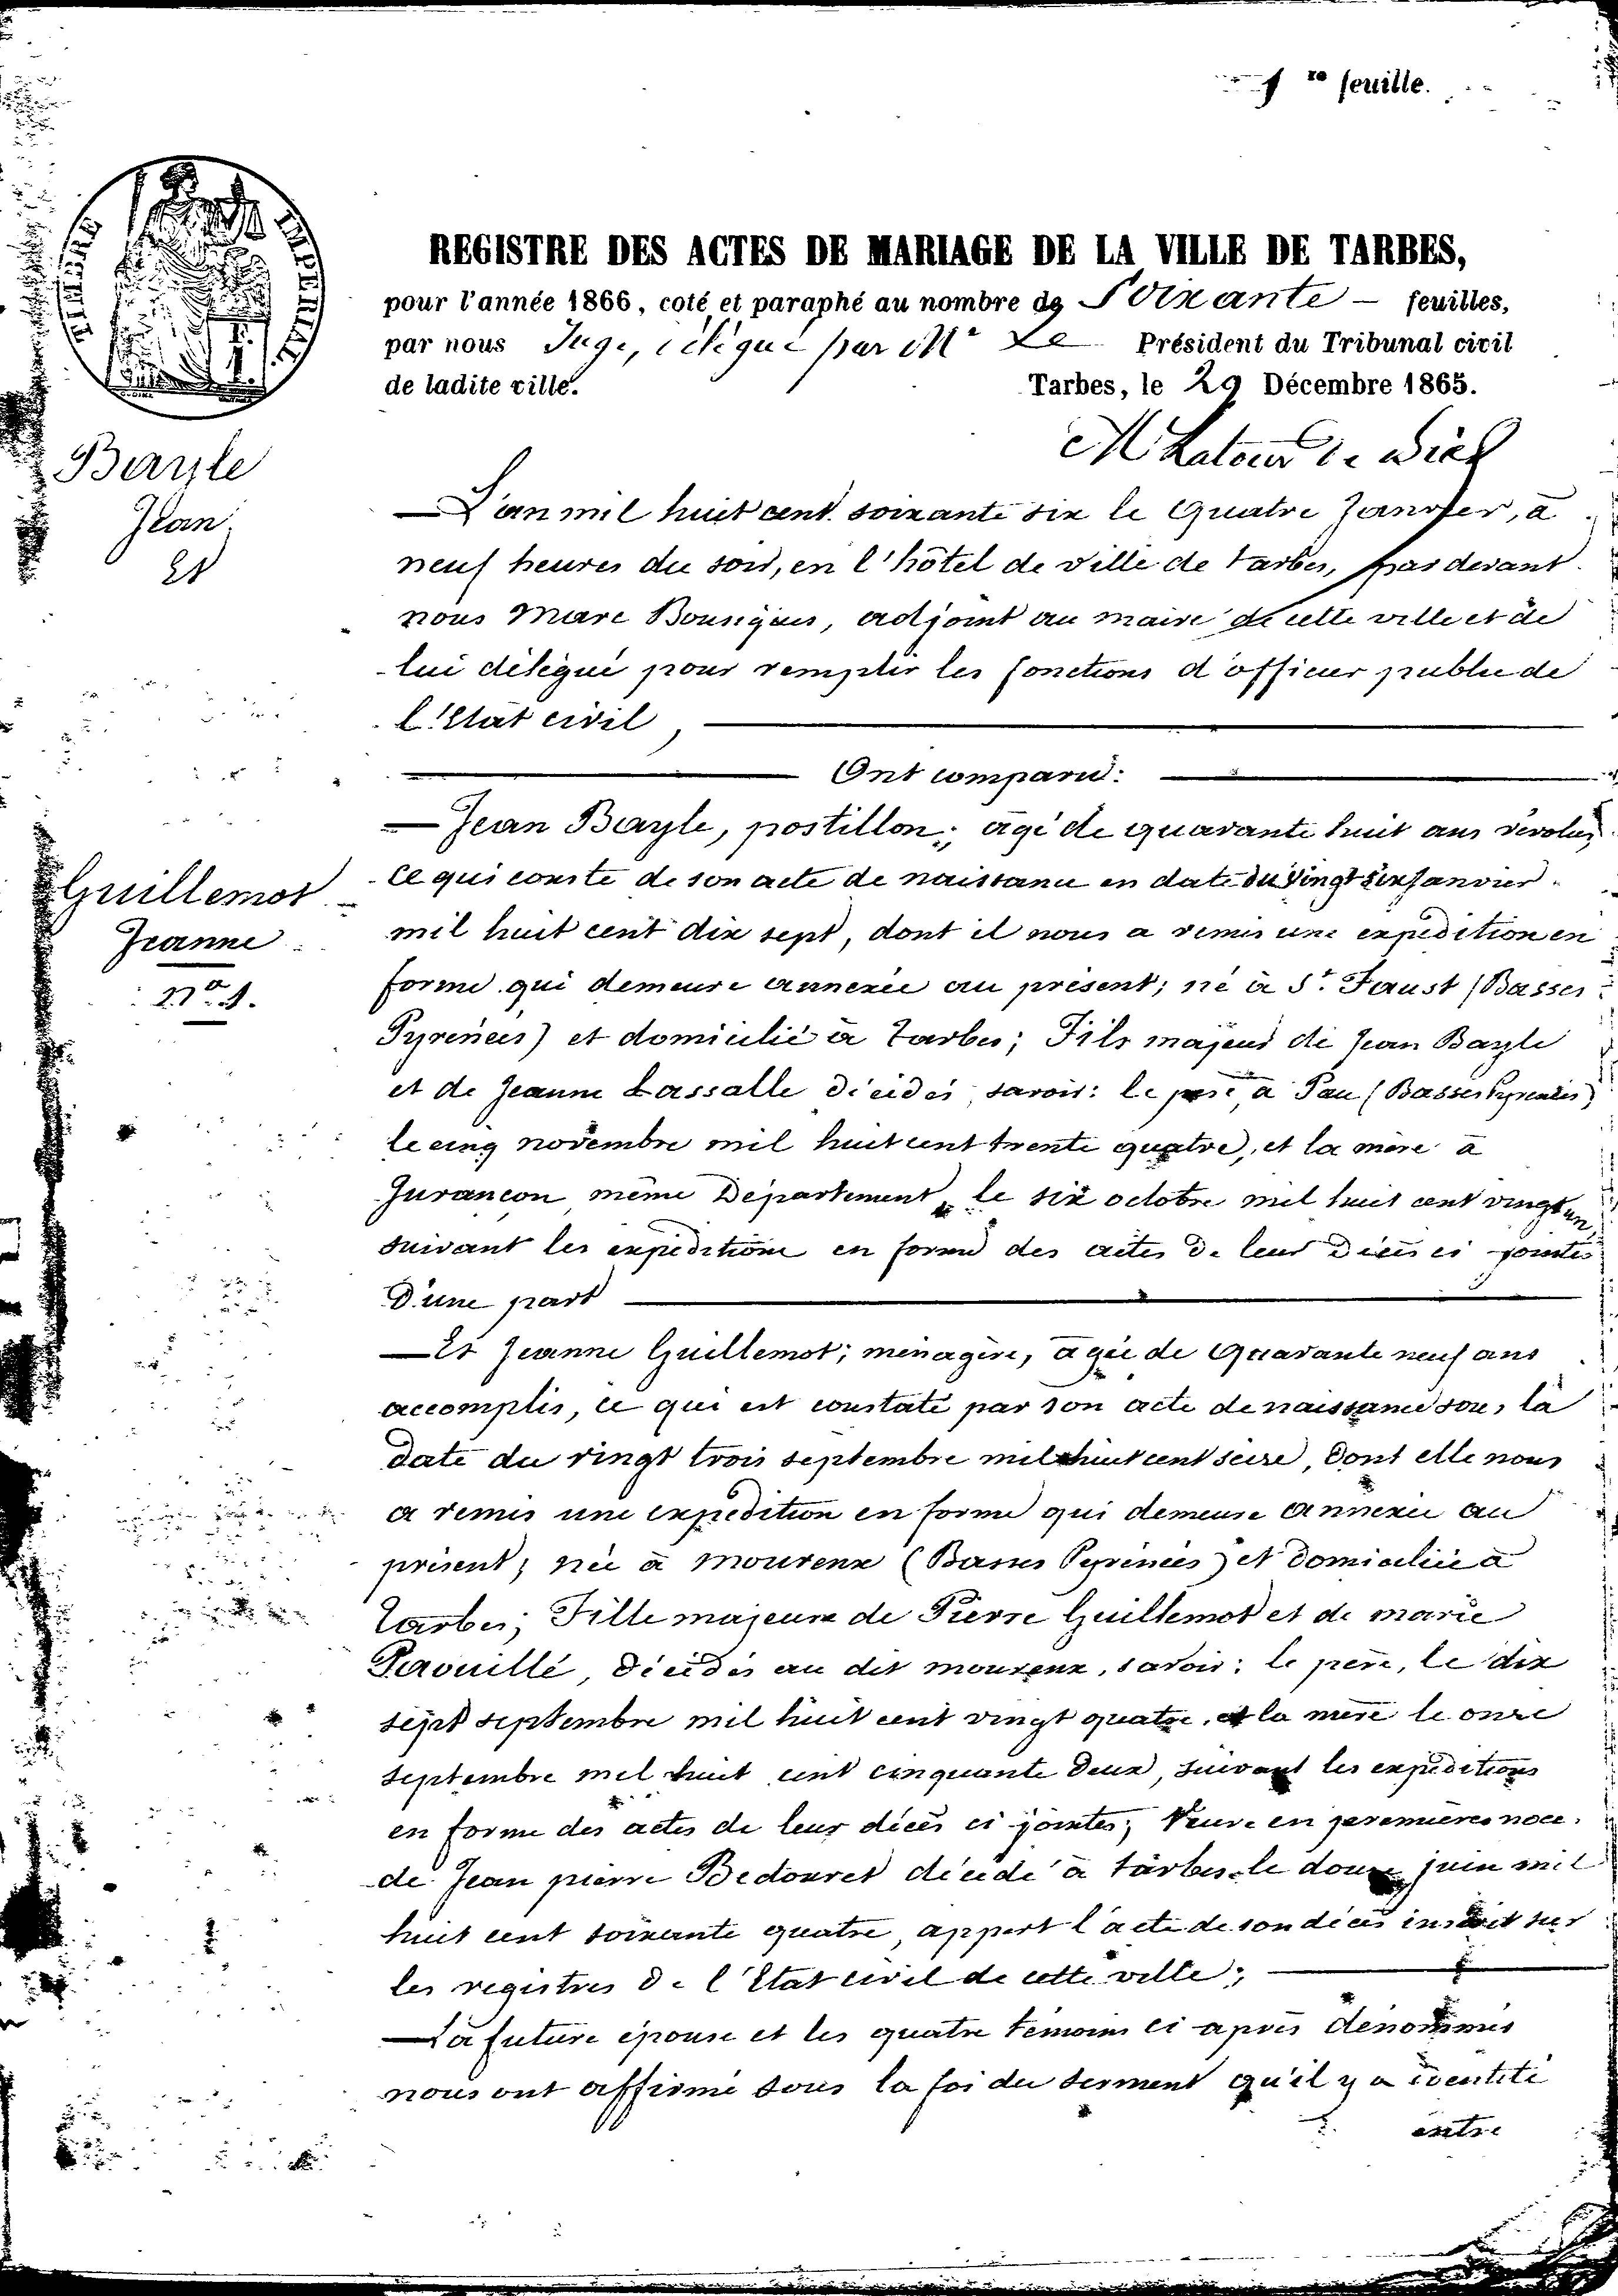 1 re feuille.
TIMBRE IMPERIAL
REGISTRE DES ACTES DE MARIAGE DE LA VILLE DE TARBES,
pour l'année 1866, coté et paraphé au nombre de Soixante — feuilles,
par nous Juge, délégué par Mr Le Président du Tribunal civil
de ladite ville. Tarbes, le 29 Décembre 1865.
Bayle
Jean
Et
Guillemot
Jeanne
No 1.
— L'an mil huit cent soixante six le Quatre Janvier, à
neuf heures du soir, en l'hôtel de ville de tarbes, par devant
nous Marc Bousigues, adjoint au maire de cette ville et de
lui délégué pour remplir les fonctions d'officier public de
l'Etat civil,
Ont comparu:
— Jean Bayle, postillon; âgé de quarante huit ans révolus,
ce qui conste de son acte de naissance en date du vingt six Janvier
mil huit cent dix sept, dont il nous a remis une expédition en
forme qui demeure annexée au présent; né à St. Faust (Basses
Pyrénées) et domicilié à Tarbes; Fils majeur de Jean Bayle
et de Jeanne Lassalle décédés, savoir: le père, à Pau (Basses Pyrénées)
le cinq novembre mil huit cent trente quatre, et la mère à
Jurançon même Département, le six octobre mil huit cent vingt un,
suivant les expéditions en forme des actes de leur décès ci jointes
D'une part
— Et Jeanne Guillemot; ménagère, âgée de Quarante neuf ans
accomplis, ce qui est constaté par son acte de naissance sous la
date du vingt trois septembre mil huit cent seize, dont elle nous
a remis une expédition en forme qui demeure annexée au
présent; née à mourenx (Basses Pyrénées) et domiciliée à
Tarbes; Fille majeure de Pierre Guillemot et de marie
décédés au dit mourenx, savoir: le père, le dix
sept septembre mil huit cent vingt quatre, et la mère le onze
septembre mil huit cent cinquante deux, suivant les expéditions
en forme des actes de leur décès ci jointes; Veuve en premières noces
de Jean pierre Bedouret décédé à tarbes le douze juin mil
huit cent soixante quatre, appert l'acte de son décès inscrit sur
les registres de l'Etat civil de cette ville;
— La future épouse et les quatre témoins ci après dénommés
nous ont affirmé sous la foi du serment qu'il y a identité
entre